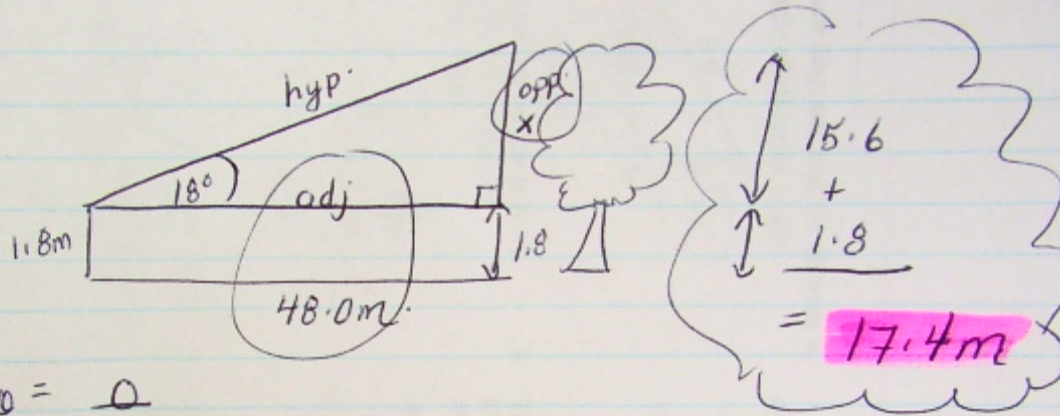 hyp.
opp.
x
18°
adj
1.8m
1.8
48.0m.
15.6
+
1.8
= 17.4m
= O